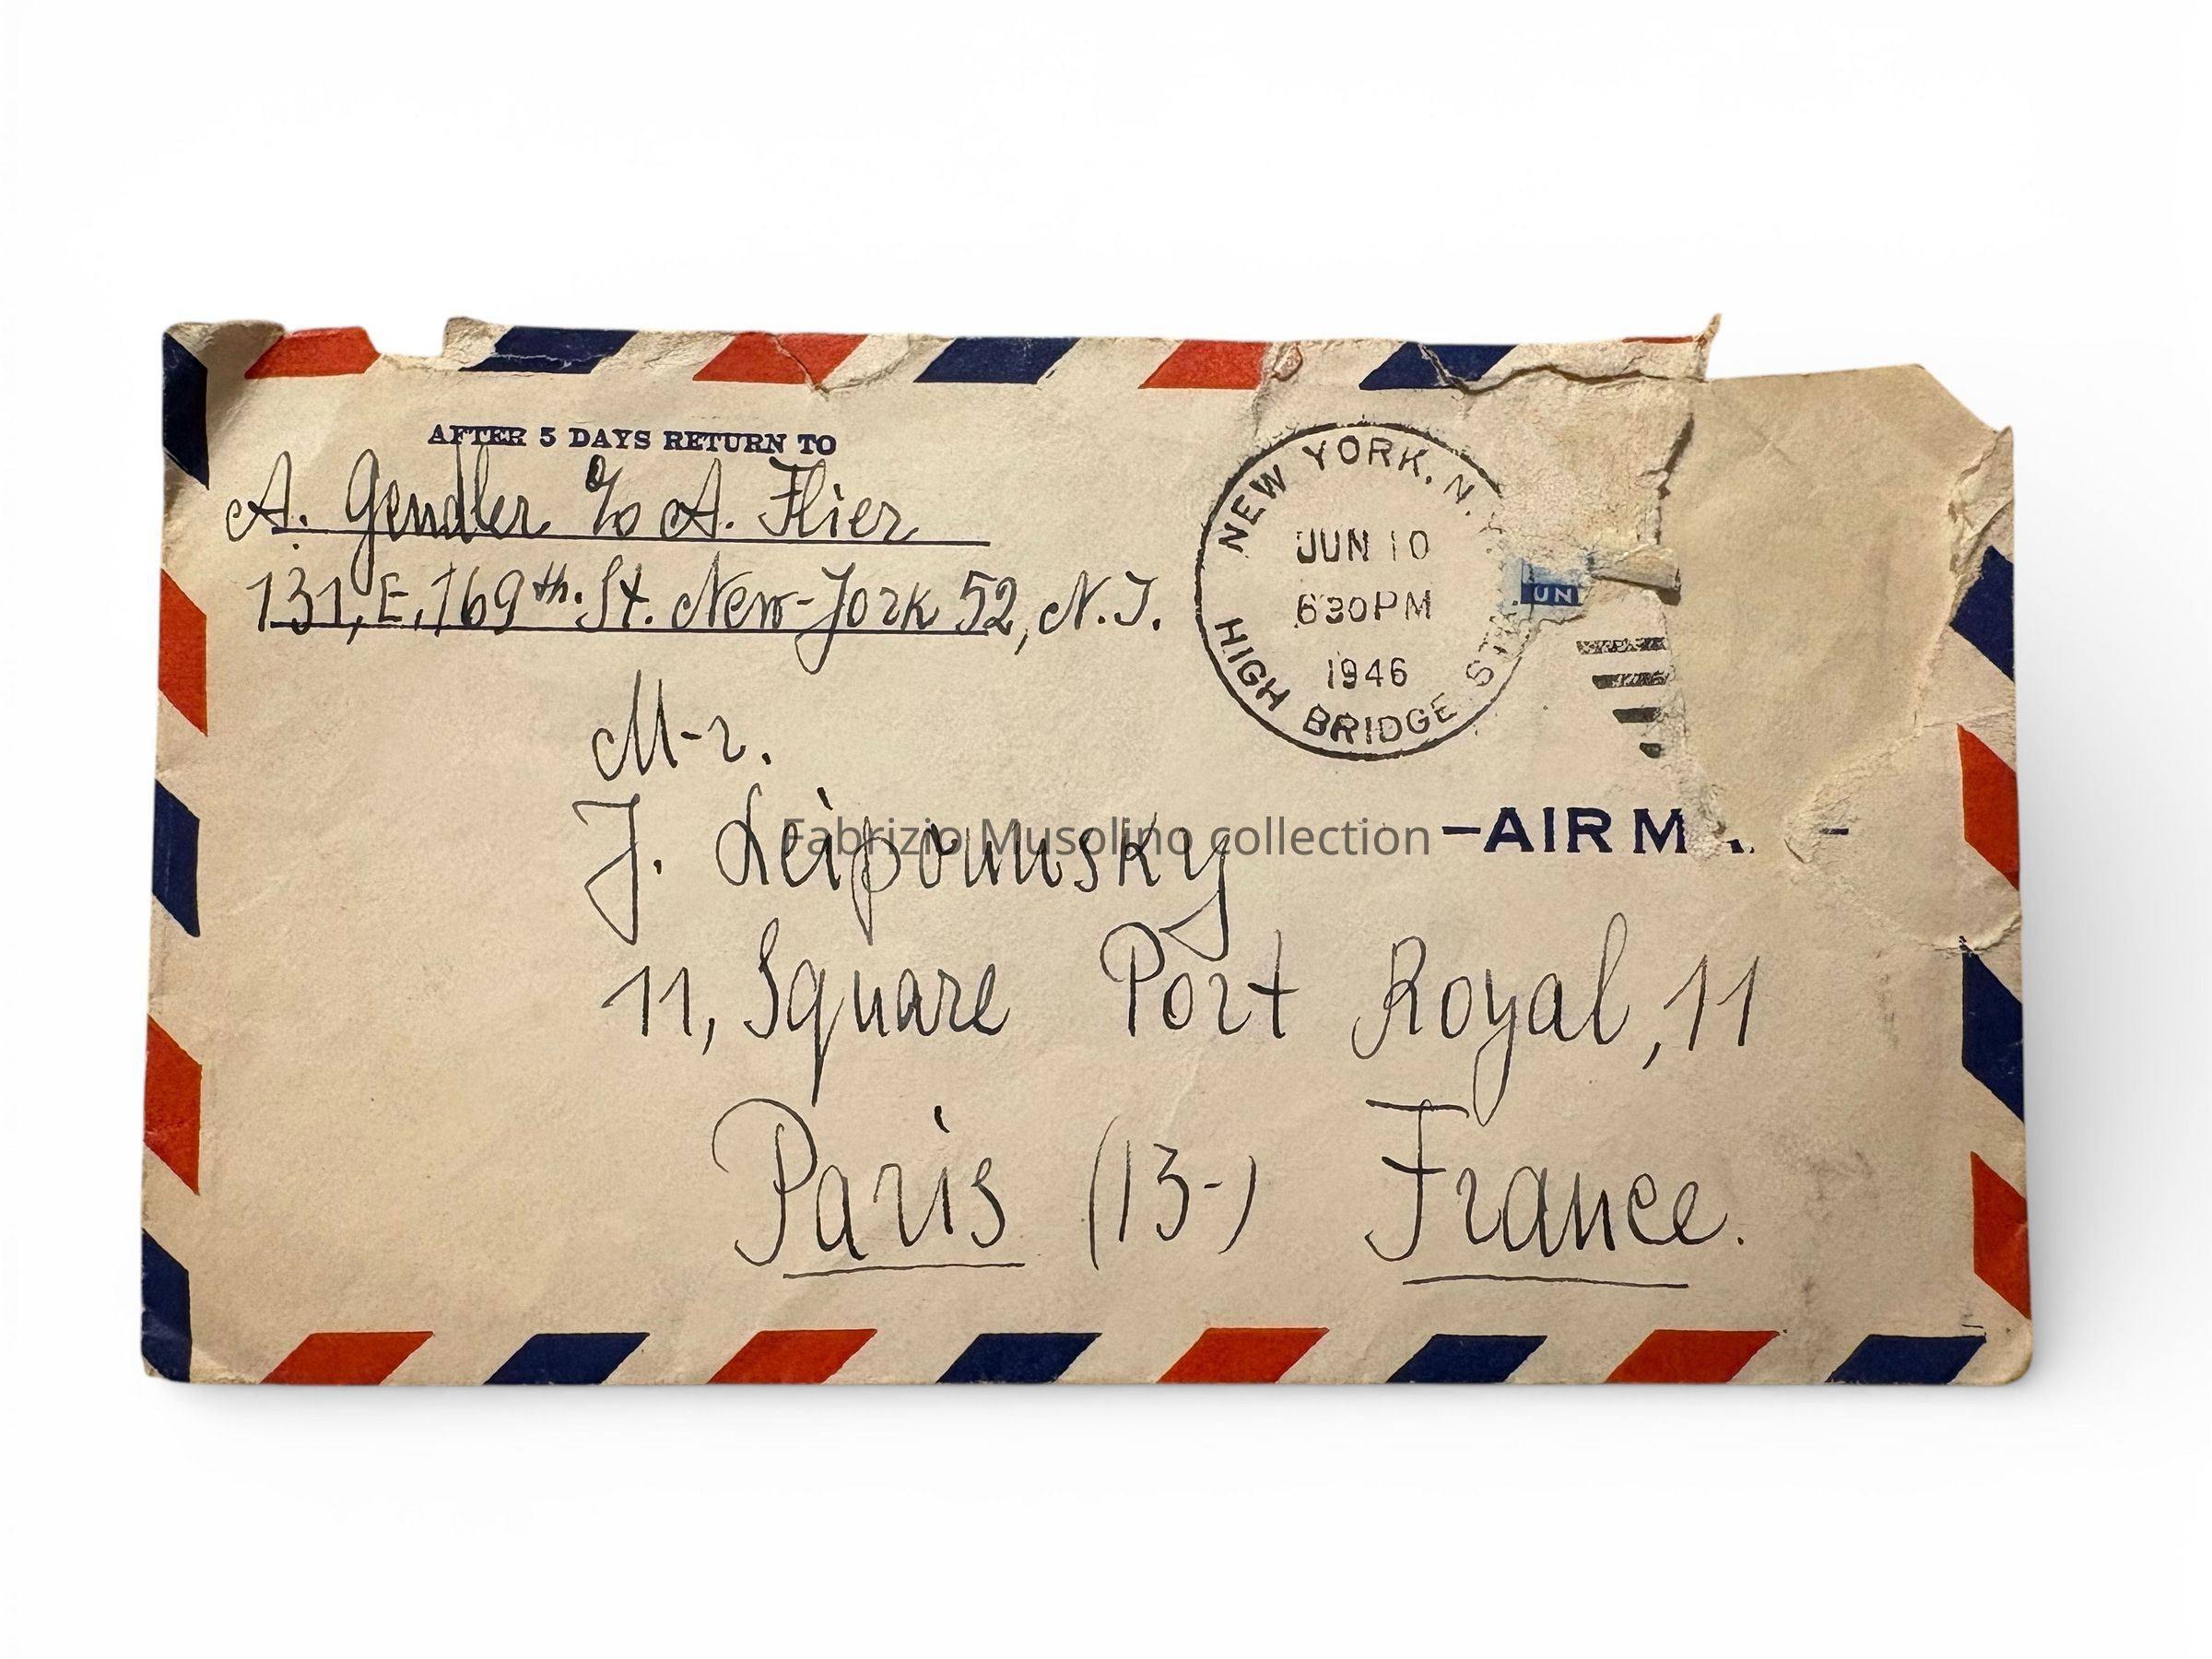 AFTER 5 DAYS RETURN TO
A. Gendler c/o A. Flier
131, E, 169th. St. New-York 52, N.Y.
NEW YORK, N.Y.
JUN 10
630PM
1946
HIGH BRIDGE STA.
UN
M-r.
J. Leipounsky
Fabrizio Musolino collection
-AIR M
11, Square Port Royal, 11
Paris (13-) France.